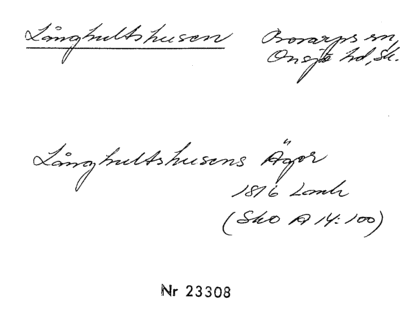 Långhultshusen Bonarps sn,
Onsjö hd, Sk.
Långhultshusens Ägor
1816 Lantm
(Skо A 14:100)
Nr 23308